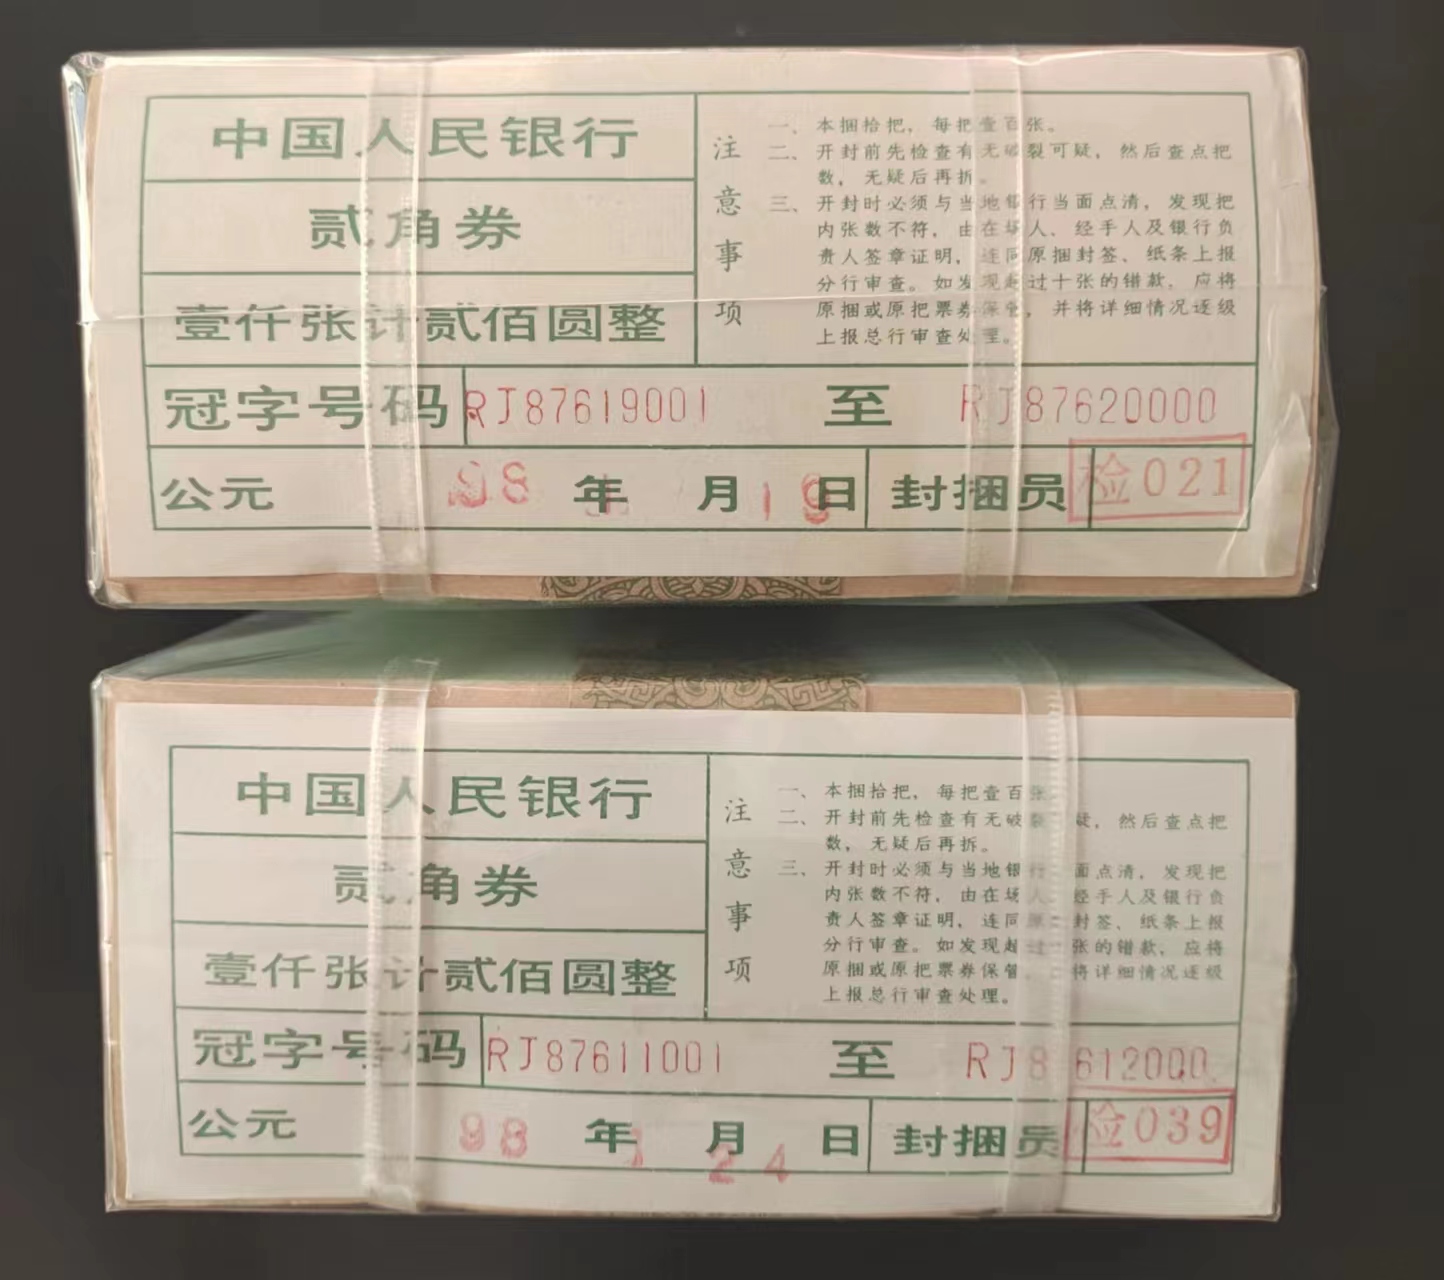 中国人民银行
贰角券
壹仟张计贰佰圆整
注意事项
一、本捆拾把，每把壹百张。
二、开封前先检查有无破裂可疑，然后查点把
数，无疑后再拆。
三、开封时必须与当地银行当面点清，发现把
内张数不符，由在场人、经手人及银行负
责人签章证明，连同原捆封签、纸条上报
分行审查。如发现超过十张的错款，应将
原捆或原把票券保管，并将详细情况逐级
上报总行审查处理。
冠字号码 RJ87619001 至 RJ87620000
公元 98 年 月 19 日 封捆员 检021
中国人民银行
贰角券
壹仟张计贰佰圆整
注意事项
一、本捆拾把，每把壹百张
二、开封前先检查有无破裂 疑，然后查点把
数，无疑后再拆。
三、开封时必须与当地银行 面点清，发现把
内张数不符，由在场人、经手人及银行负
责人签章证明，连同原 封签、纸条上报
分行审查。如发现超过 张的错款，应将
原捆或原把票券保管， 将详细情况逐级
上报总行审查处理。
冠字号码 RJ87611001 至 RJ8 612000
公元 98 年 1 月 24 日 封捆员 检039